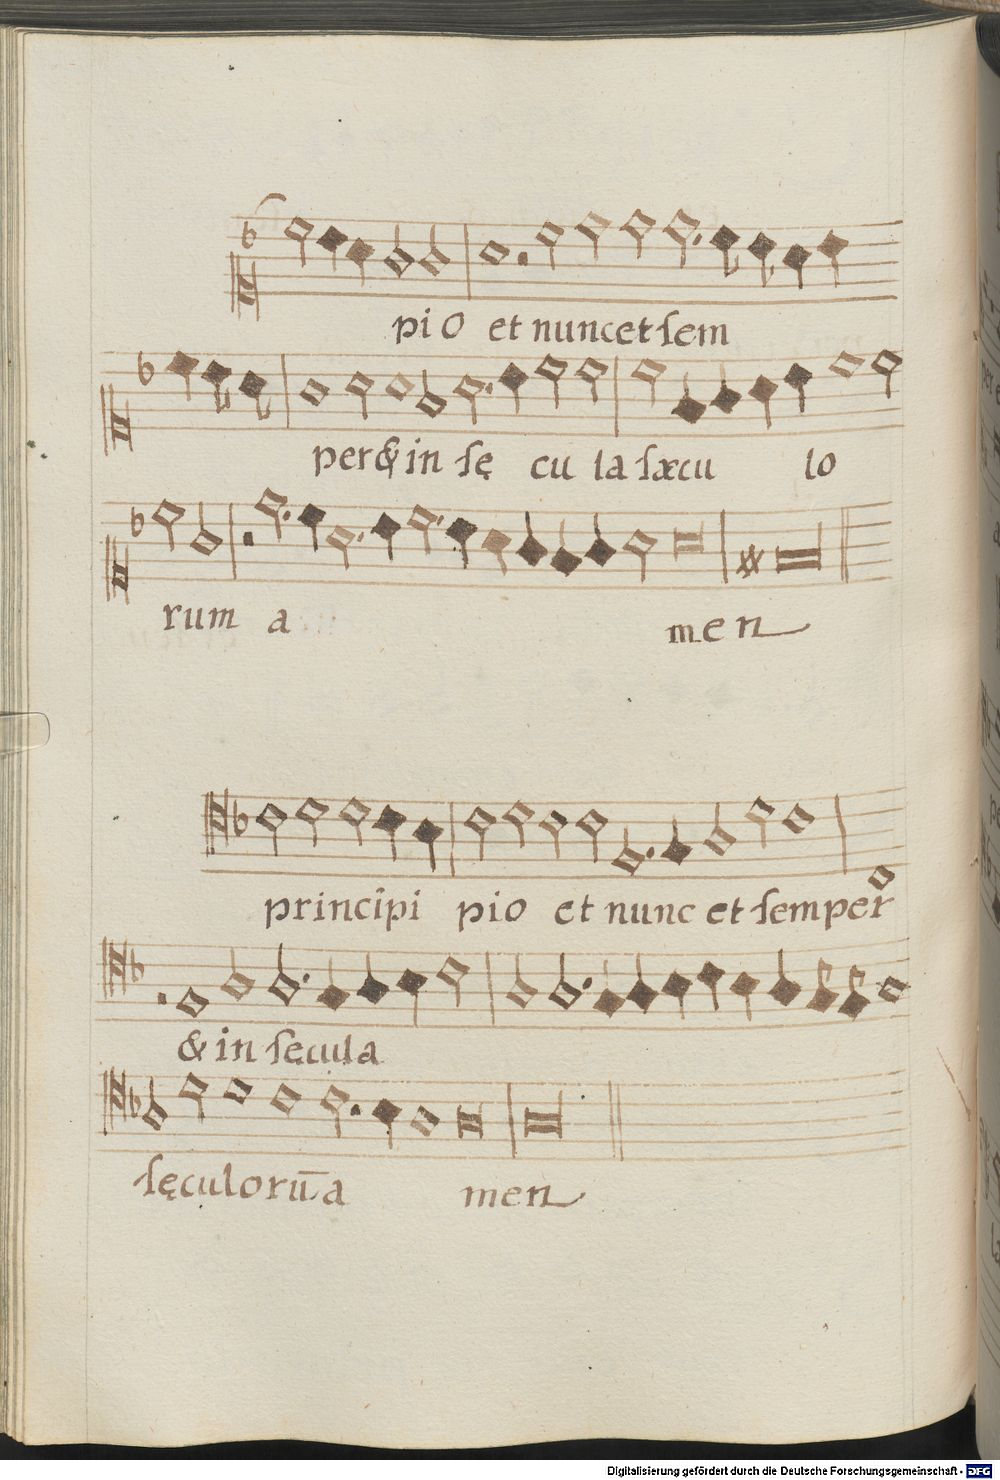 pi o et nunc et ſem
per & in ſę cu la ſæcu lo
rum a men
principi pio et nunc et ſemper
& in ſęcula
ſęculorū a men
Digitalisierung gefördert durch die Deutsche Forschungsgemeinschaft - DFG